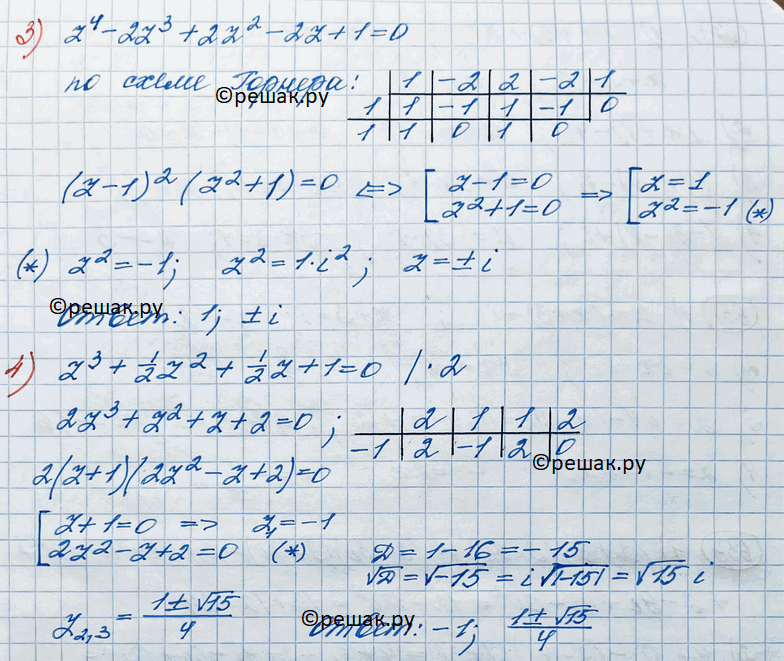 3) z⁴ - 2z³ + 2z² - 2z + 1 = 0
по схеме Горнера:
1 -2 2 -2 1
1 1 -1 1 -1 0
1 1 0 1 0
©решак.ру
(z-1)² (z²+1) = 0 <=> [ z-1=0 => [ z=1
z²+1=0 z²=-1 (*)
(*) z² = -1; z² = 1·i²; z = ± i
©решак.ру
ответ: 1; ± i
4) z³ + 1/2 z² + 1/2 z + 1 = 0 | · 2
2z³ + z² + z + 2 = 0;
2 1 1 2
-1 2 -1 2 0
©решак.ру
2(z+1)(2z² - z + 2) = 0
[ z+1=0 => z₁ = -1
2z² - z + 2 = 0 (*) D = 1 - 16 = -15
√D = √-15 = i √|-15| = √15 i
z₂,₃ = 1±√15/4
©решак.ру
ответ: -1; 1±√15/4